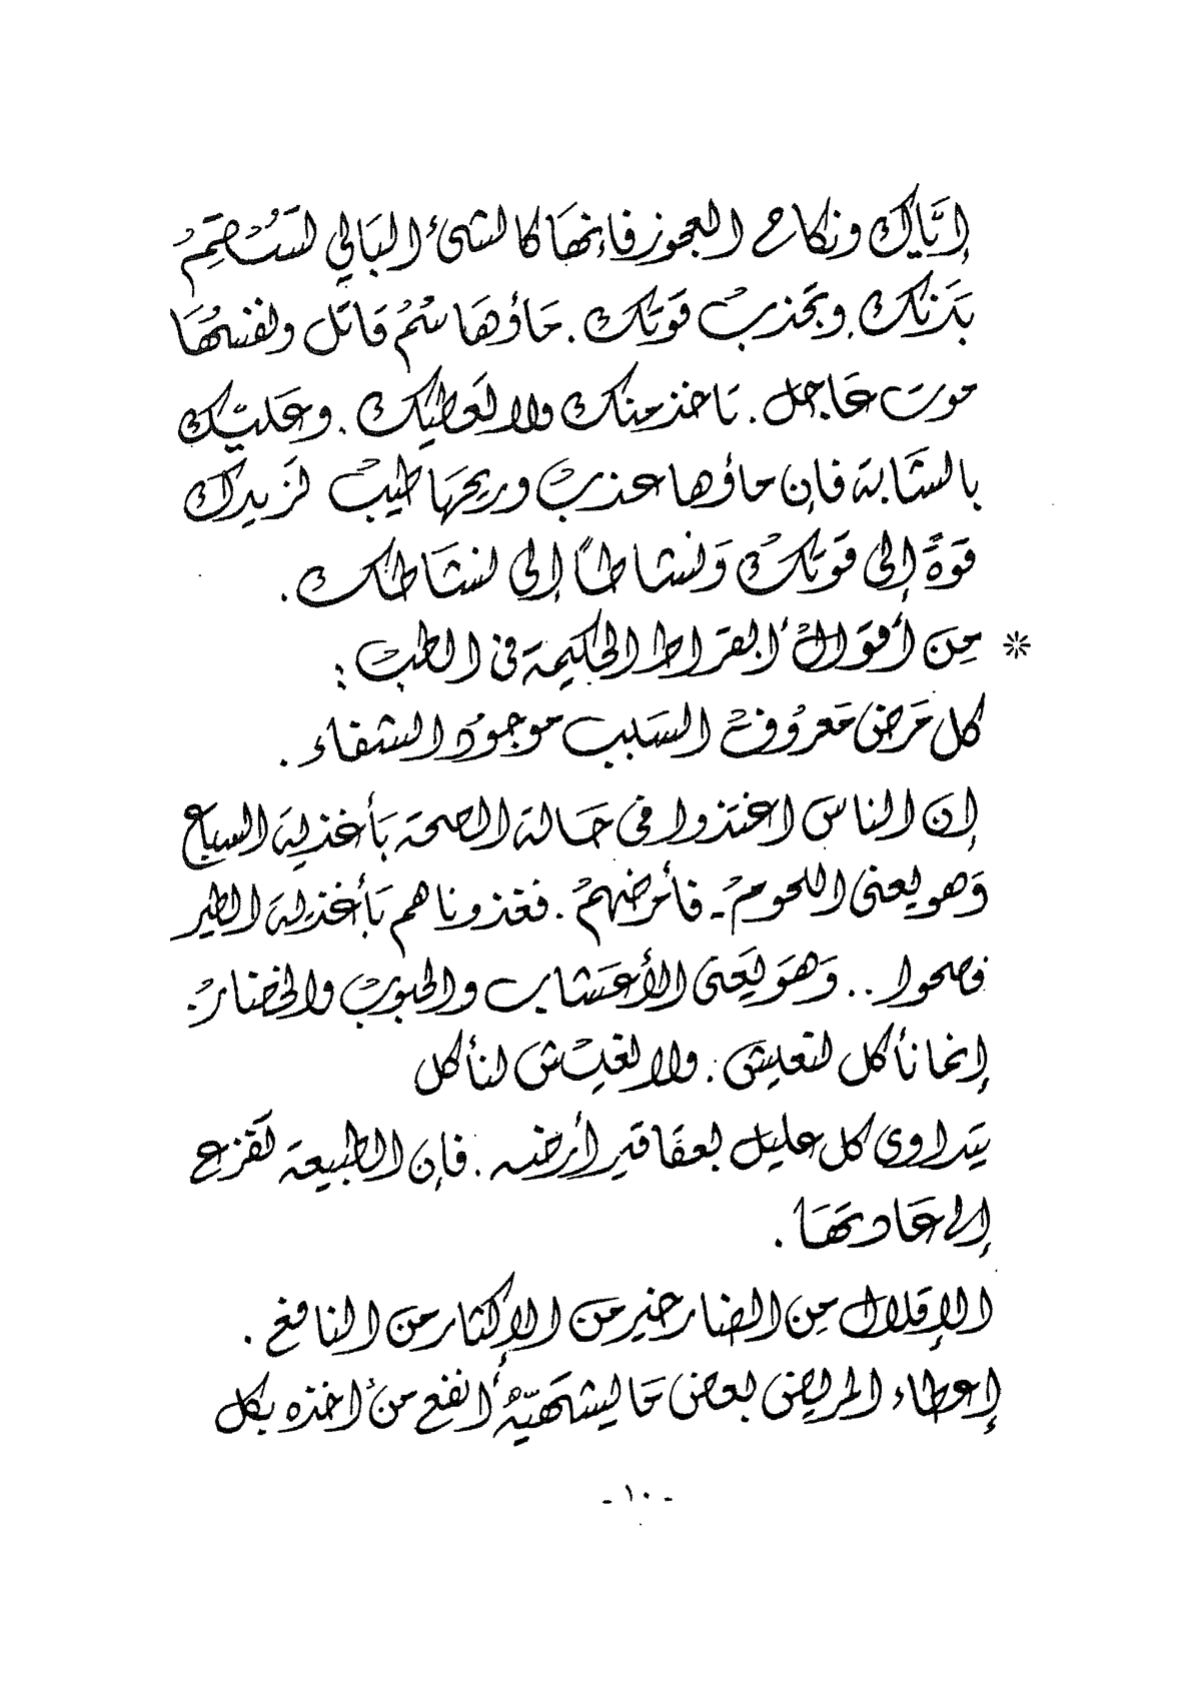 إيَّاك ونكاح العجوز فإنهَا كالشئ البَالي تَستهمُّ
بَدنك. ويجذبُ قوتك. مَاؤهَا سُمٌ قاتل ونفسهَا
موت عَاجل. تأخذ منك ولا تعَطيك. وعَليك
بالشَابة فإن ماؤها عذبٌ وريحهَا طيبٌ تزيدك
قوةً إلى قوتك وَنشاطاً إلى نشَاطك.
* مِنَ أقوَالُ أبقراط الحكيمة فى الطب:
كل مَرض مَعروفُ السَبب موجودُ الشفاء.
إن الناس اغتذوا فى حَالة الصحة بَأغذية السباع
وَهو يعنى اللحومُ - فأمرضهمُ. فغذوناهم بَأغذية الطير
فصحوا.. وَهوَ يَعنى الأعشاب والحبوب والخضارُ.
إنما نأكل لنعيش. ولا نعيش لنأكل
يتداوى كل عليل بعقاقير أرضه. فإن الطبيعة تفزع
إلى عَادتهَا.
الإقلال مِن الضار خير من الإكثار من النافع.
إعطاء المريض بعض مَا يشتهيهُ أنفع من أخذه بكل
- ١٠ -